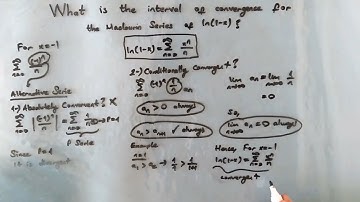 What is the interval of convergence for
the Maclaurin Series of ln(1-x)?
For x=-1
∞ Σ n=0 (-1)^n / n
Alternative Serie
1-) Absolutely Convernent? X
∞ Σ n=0 |(-1)^n / n| = ∞ Σ n=0 1/n → p=1
P Serie
Since P=1
it is divergent
ln(1-x) = ∞ Σ n=0 x^n / n
2-) Conditionally Converges?
∞ Σ n=0 (-1)^n 1/n
an > 0 always!
an > an+1 ✓ always!
Example
n=1
a1 > a2 →
lim n→∞ an = lim n→∞ 1/n
= 0
So,
lim n→∞ an = 0 always!
Hence, For x=-1
ln(1-x) = ∞ Σ n=0 x^n / n
converges